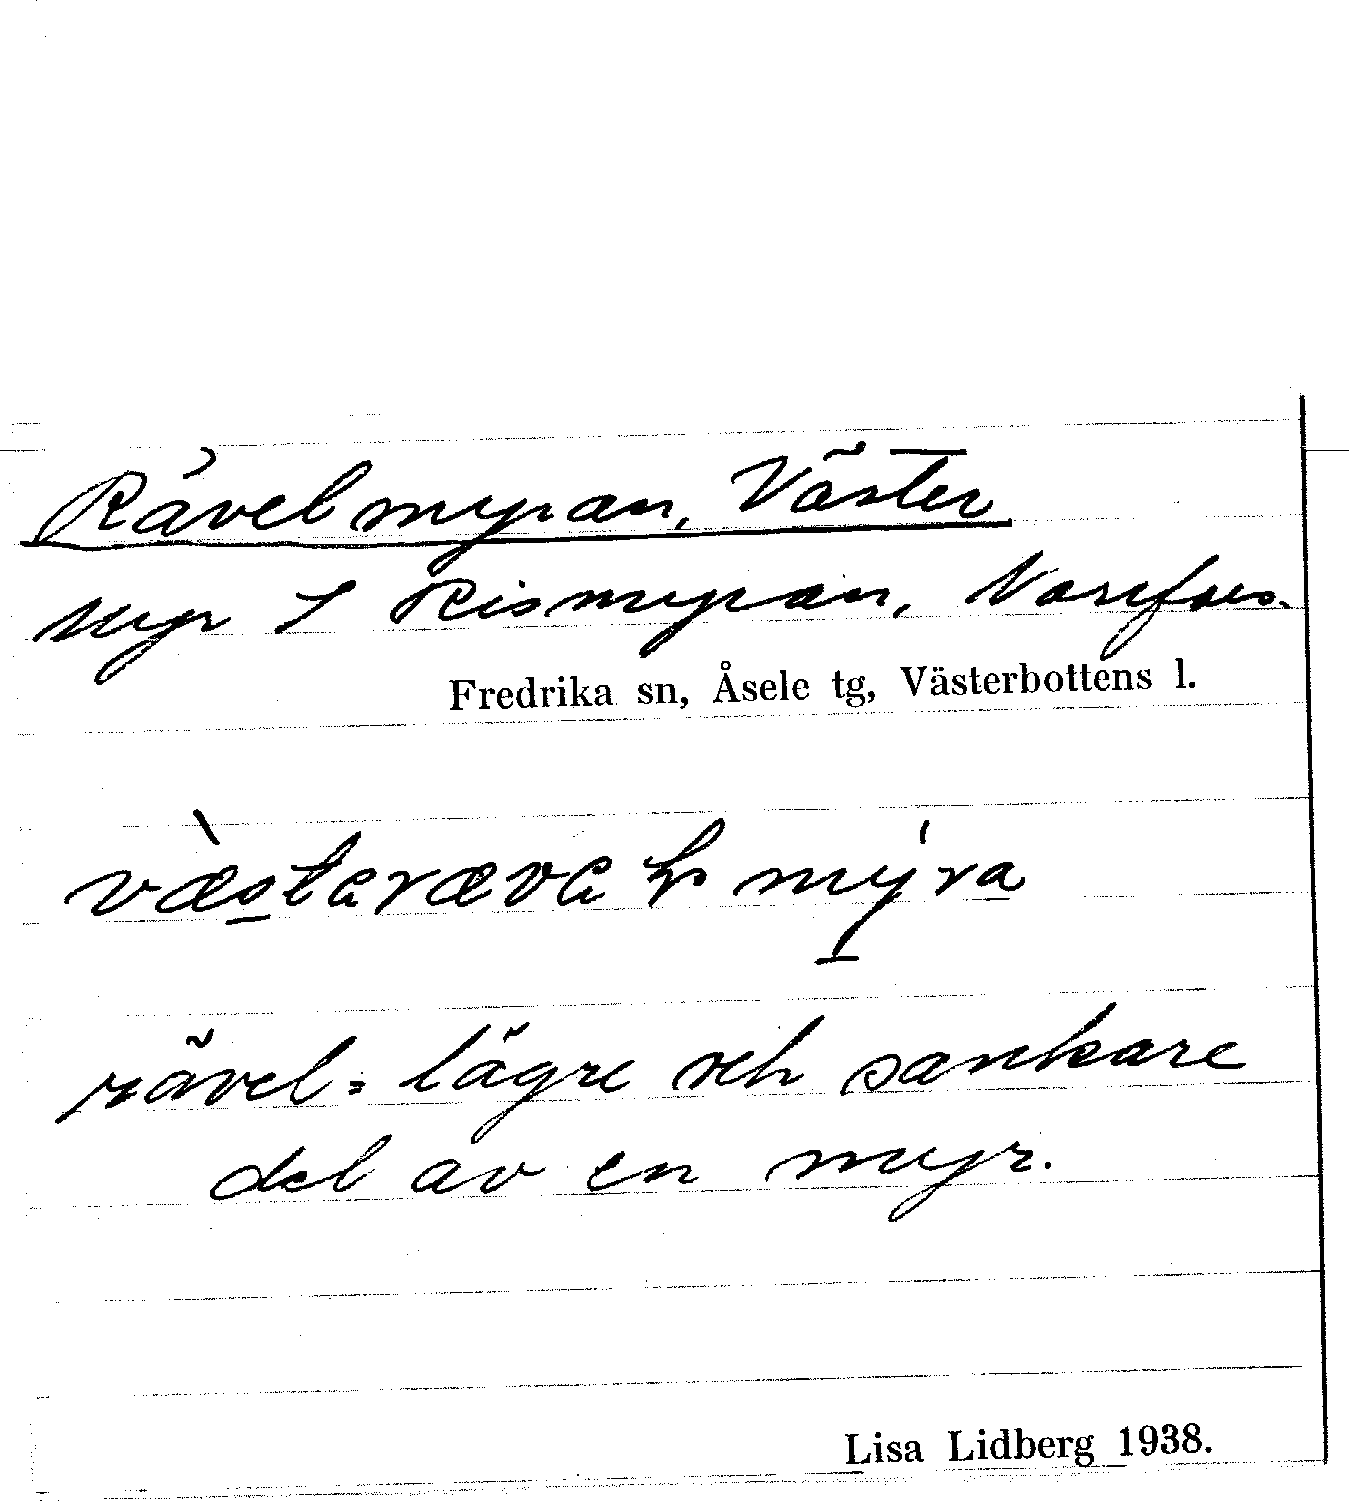 Rävelmyran, Väster
Myr S Rismyran, Norrfors.
Fredrika sn, Åsele tg, Västerbottens l.
rävel = lägre och sankare
del av en myr.
Lisa Lidberg 1938.